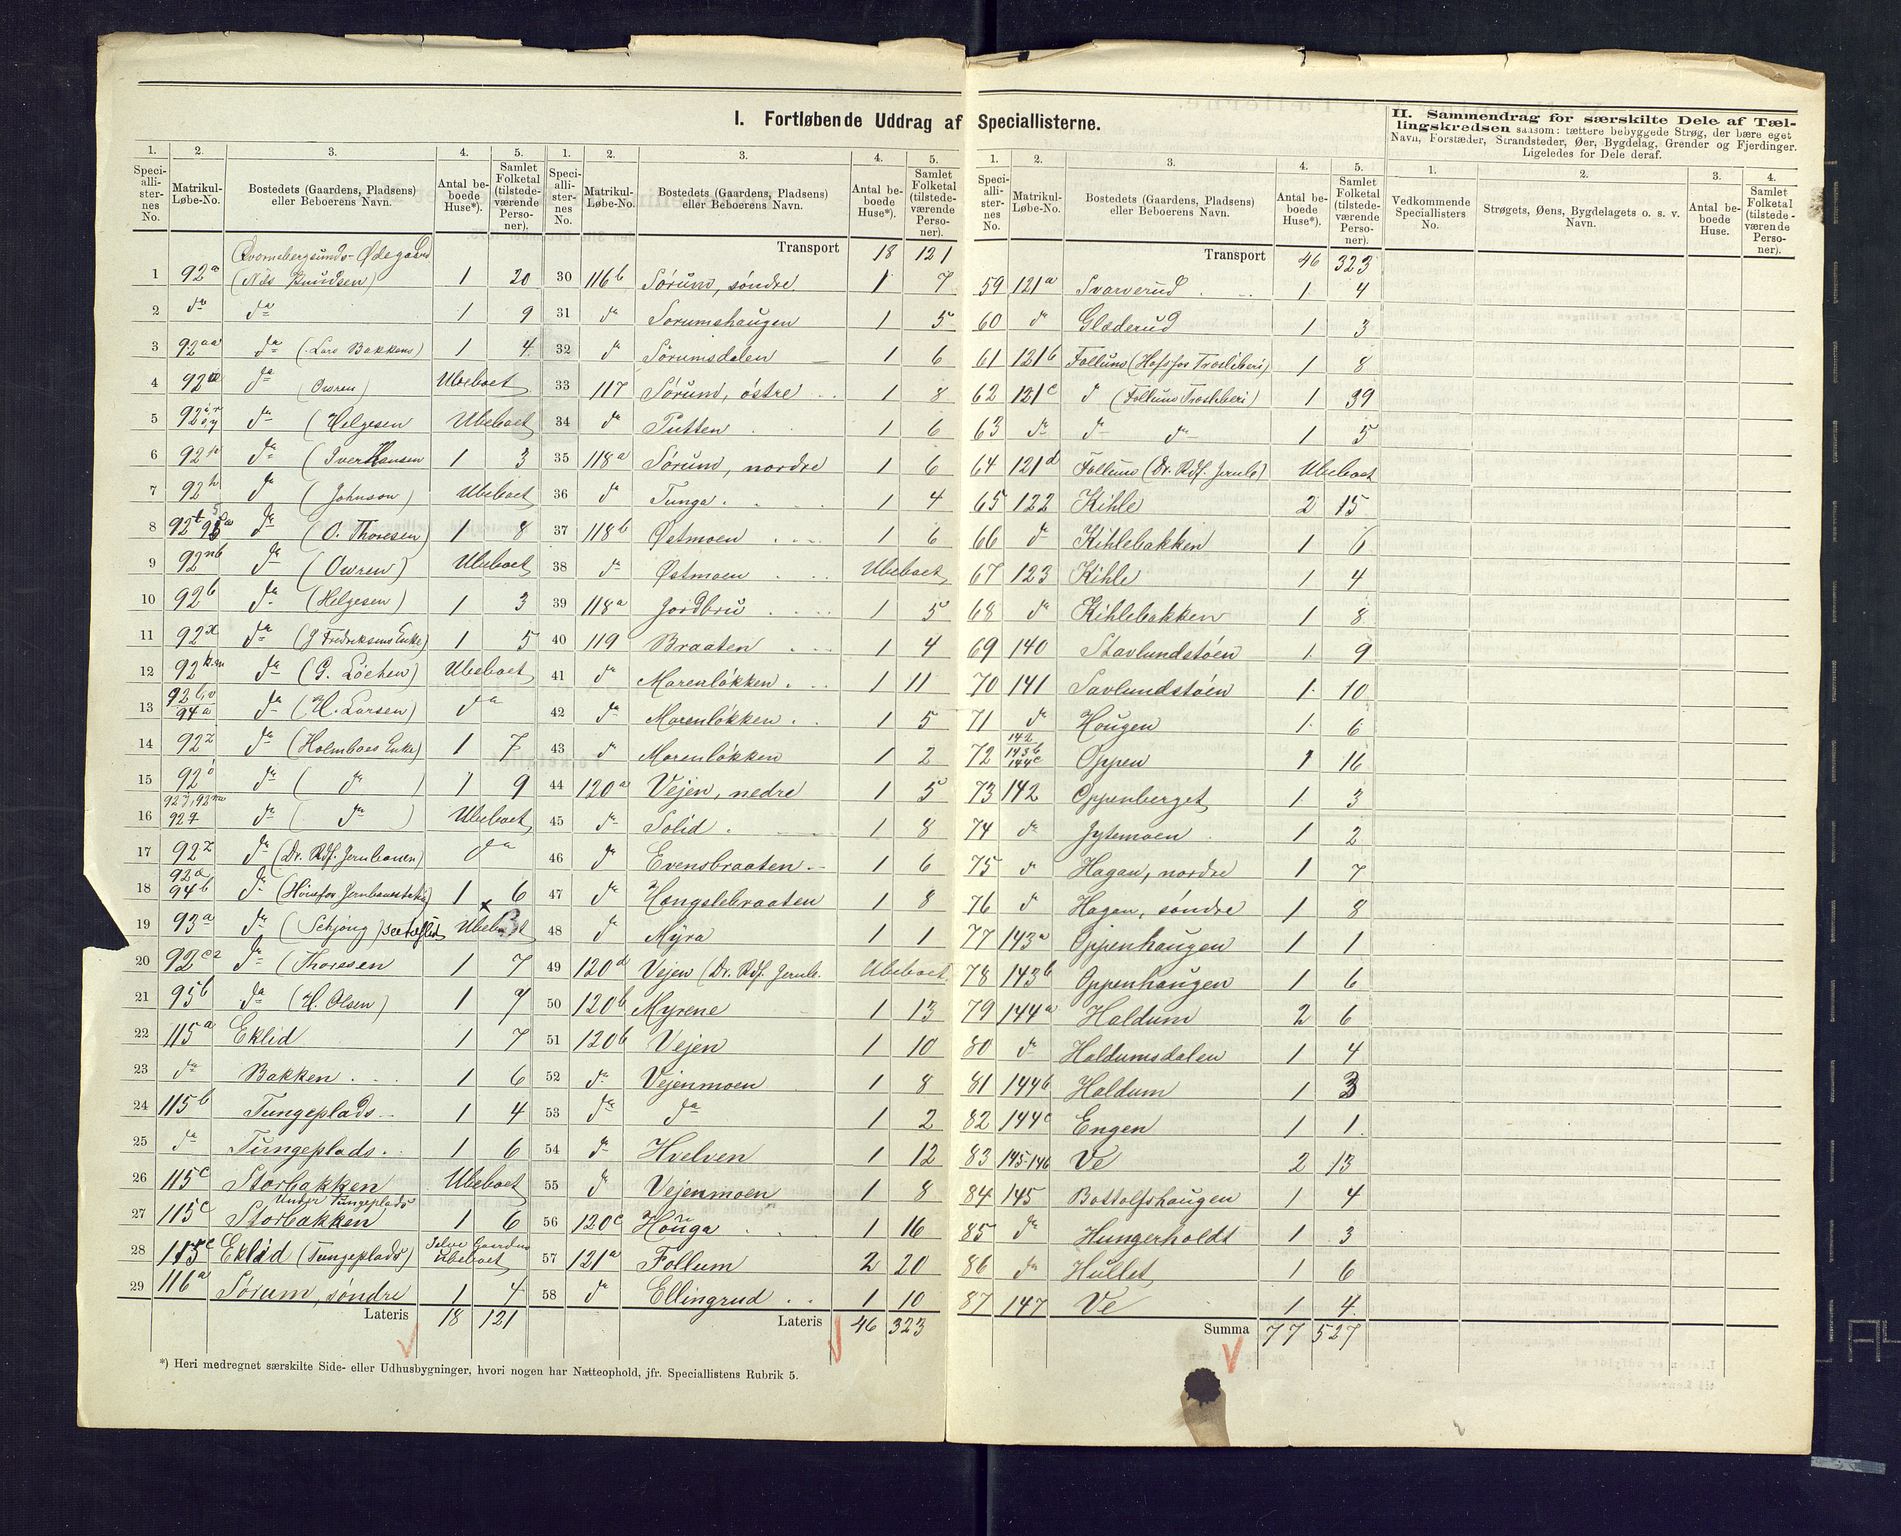 I. Fortløbende Uddrag af Speciallisterne.
II. Sammendrag for særskilte Dele af Tællingskredsen saasom: tættere bebyggede Strøg, der bære eget Navn, Forstæder, Strandsteder, Øer, Bygdelag, Grender og Fjerdinger. Ligeledes for Dele deraf.
1. 2. 3. 4. 5. 1. 2. 3. 4. 5.
Speciallisternes No. Matrikul-Løbe-No. Bostedets (Gaardens, Pladsens) eller Beboerens Navn. Antal beboede Huse*). Samlet Folketal (tilstedeværende Personer).
Speciallisternes No. Matrikul-Løbe-No. Bostedets (Gaardens, Pladsens) eller Beboerens Navn. Antal beboede Huse*). Samlet Folketal (tilstedeværende Personer).
Ødegaard
1 92a (Nils Knudsen) 1 20
2 da da 1 9
3 92aa da (Lars Bakkens) 1 4
4 da (Owren) Ubeboet
5 da (Helgesen Ubeboet
6 da (Iver Hansen 1 3
7 92h da (Johnson) Ubeboet
8 da (O. Thoresen) 1 8
9 92nb da (Owren) Ubeboet
10 92b da (Helgesen) 1 3
11 92x da (J Fredriksens Enke) 1 5
12 da (G. Løchen) Ubeboet
13 94a da (H. Larsen) da
14 92z da (Holmboes Enke) 1 7
15 92ö da ( da ) 1 9
16 da ( da ) Ubeboet
17 92z da (Dr. Rdf. Jernbanen) da
18 92a 94b da 1 6
19 93a da (Schjong) Ubeboet
20 92c2 da (Thoresen 1 7
21 95b da (H. Olsen) 1 7
22 115a Eklid 1 7
23 da Bakken 1 6
24 115b Tungeplads 1 4
25 da Tungeplads 1 6
26 115c Storbakken Ubeboet
Under Tungeplads
27 115c Storbakken 1 6
28 115c Eklid (Tungeplads) Selve Gaarden ubeboet
29 116a Sørum, søndre 1 4
Lateris 18 121
*) Heri medregnet særskilte Side- eller Udhusbygninger, hvori nogen har Natteophold, jfr. Speciallistens Rubrik 5.
Transport 18 121
30 116b Sørum, søndre 1 7
31 da Sorumshaugen 1 5
32 da Sørumsdalen 1 6
33 117 Sørum, østre 1 8
34 da Putten 1 6
35 118a Sørum, nordre 1 6
36 da Tunga 1 4
37 118b Østmoen 1 6
38 da Østmoen Ubeboet
39 118a Jordbru 1 5
40 119 Braaten 1 4
41 da Marenløkken 1 11
42 da Marenløkken 1 5
43 da Marenløkken 1 2
44 120a Vejen, nedre 1 5
45 da Solid 1 8
46 da Evensbraaten 1 6
47 da Hengslebraaten 1 8
48 da Myra 1 1
49 120d Vejen (Dr. Rdf. Jernb. Ubeboet
50 120b Myrene 1 13
51 120b Vejen 1 10
52 da Vejenmoen 1 8
53 da da 1 2
54 da Hvelven 1 12
55 da Vejenmoen 1 8
56 120c Houga 1 16
57 121a Follum 2 20
58 da Ellingrud 1 10
Lateris 46 323
1. 2. 3. 4. 5. 1. 2. 3. 4.
Speciallisternes No. Matrikul-Løbe-No. Bostedets (Gaardens, Pladsens) eller Beboerens Navn. Antal beboede Huse*). Samlet Folketal (tilstedeværende Personer).
Vedkommende Speciallisters No. Strøgets, Øens, Bygdelagets o. s. v. Navn. Antal beboede Huse. Samlet Folketal (tilstedeværende Personer).
Transport 46 323
59 121a Svarverud 1 4
60 da Glæderud 1 3
61 121b Follum (Hofsfos Træsliberi) 1 8
62 121c da (Follums Træsliberi) 1 39
63 da da da 1 5
64 121d Follum (Dr. Rdf. Jernb) Ubeboet
65 122 Kihle 2 15
66 da Kihlebakken 1 6
67 123 Kihle 1 4
68 da Kihlebakken 1 8
69 140 Stavlundstøen 1 9
70 141 Savlundstøen 1 10
71 da Hougen 1 6
72 142 143b 144c Oppen 1 16
73 142 Oppenberget 1 3
74 da Jytemoen 1 2
75 da Hagan, nordre 1 7
76 da Hagan, søndre 1 8
77 143a Oppenhaugen 1 1
78 143b Oppenhaugen 1 6
79 144a Haldum 2 6
80 da Haldumsdalen 1 4
81 144b Haldum 1 3
82 144c Engen 1 1
83 145-146 Ve 2 13
84 145 Bottolfshaugen 1 4
85 da Hungerholdt 1 3
86 da Hullet 1 6
87 147 Ve 1 4
Summa 77 527